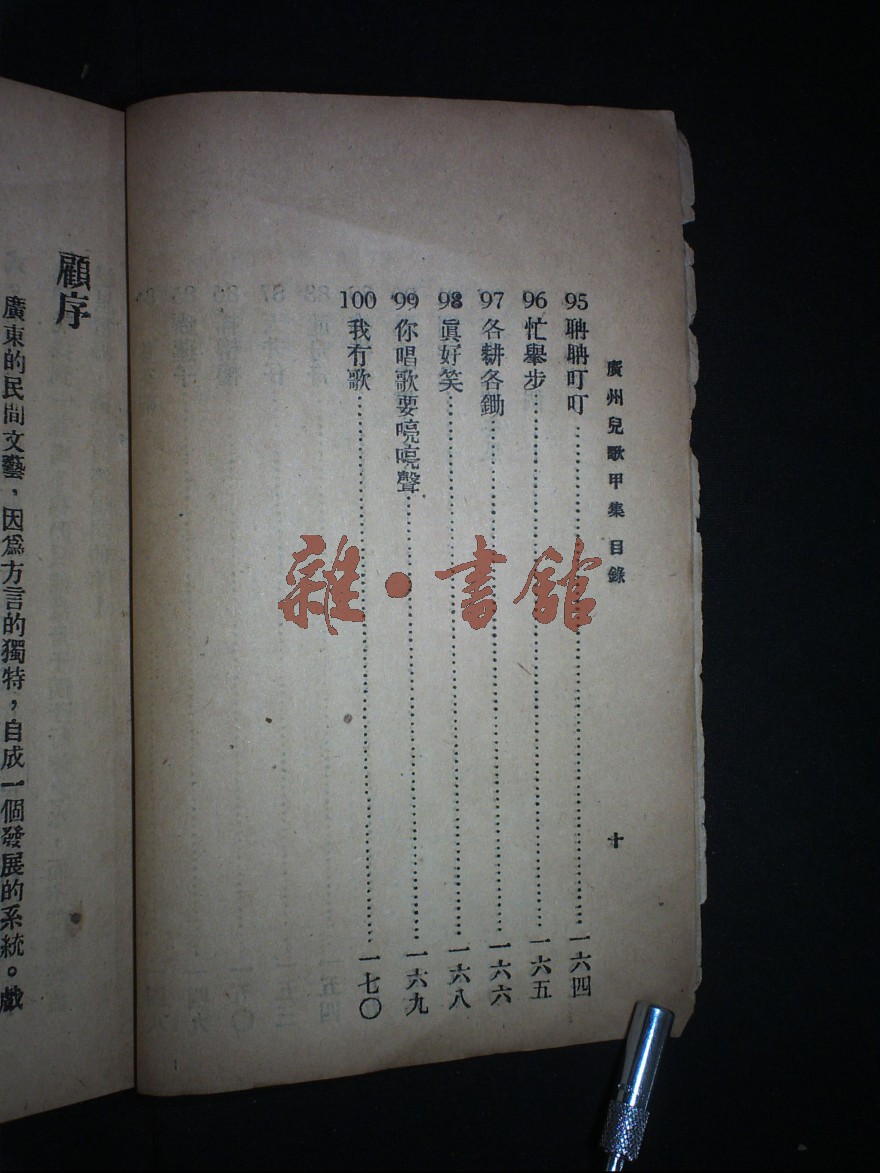 廣州兒歌甲集 目錄
十
95 聃聃叮叮 一六四
96 忙舉步 一六五
97 各耕各鋤 一六六
98 眞好笑 一六八
99 你唱歌要喨喨聲 一六九
100 我冇歌 一七〇
顧序
廣東的民間文藝，因爲方言的獨特，自成一個發展的系統。戲
雜·書館